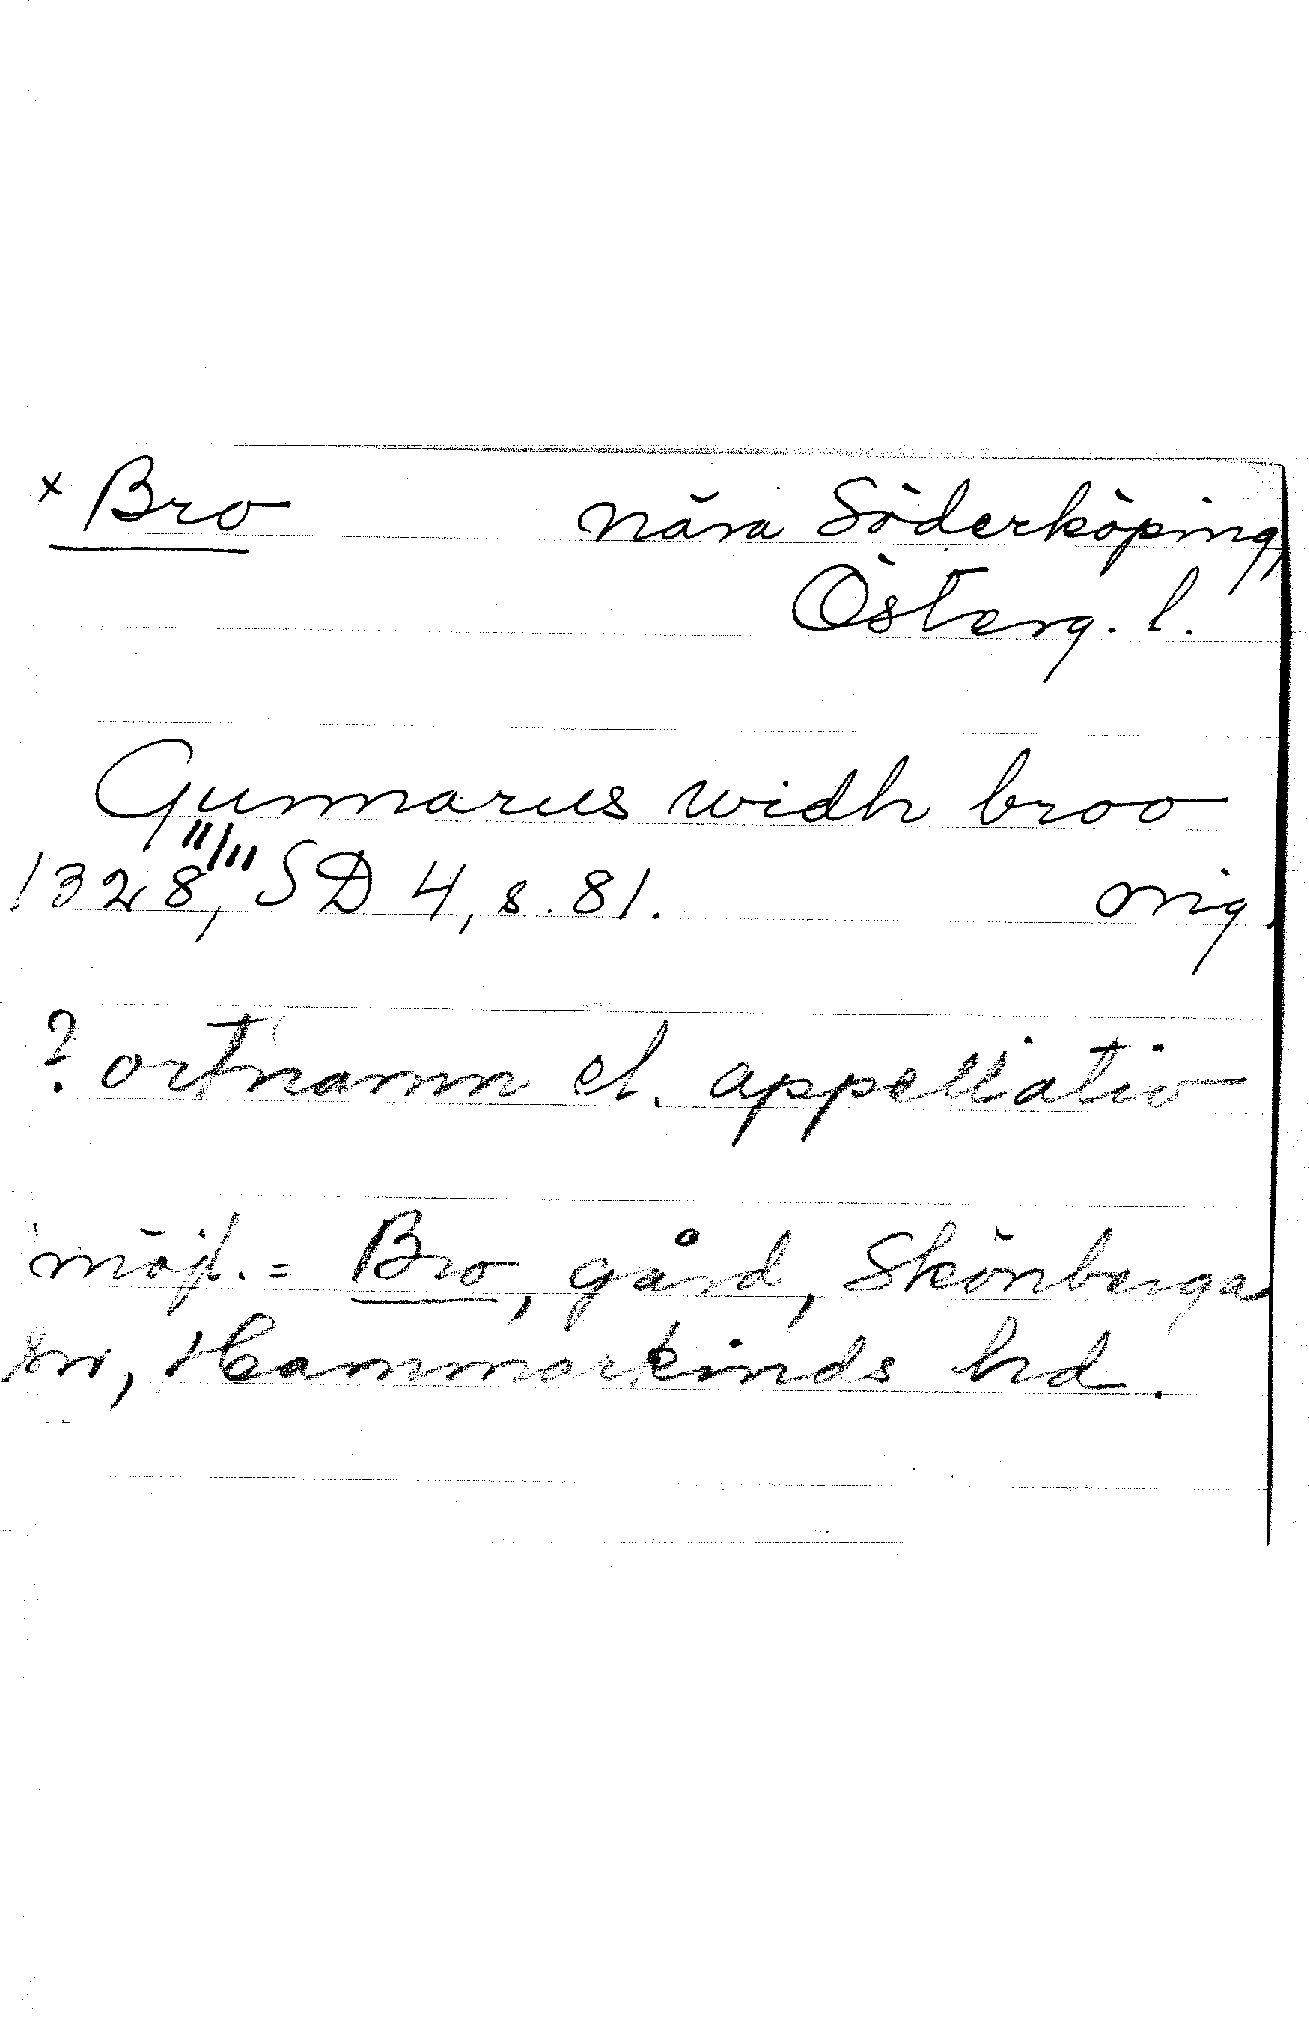 × Bro nära Söderköping,
Österg. l.
Gunnarus widh broo
1328 11/11, SD 4, s. 81. orig.
? ortnamn el. appellativ
möjl. = Bro, gård, Skönberga
sn, Hammarkinds hd.